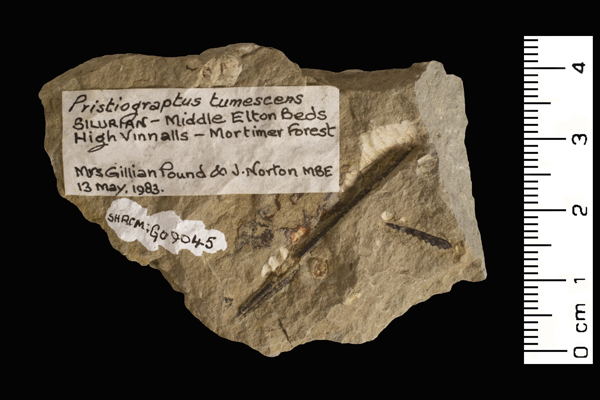 Pristiograptus tumescens
SILURIAN - Middle Elton Beds
High Vinnalls - Mortimer Forest
Mrs Gillian Pound & J. Norton MBE
13 May, 1983.
SHRCM: G09045
4
3
2
1
0 cm